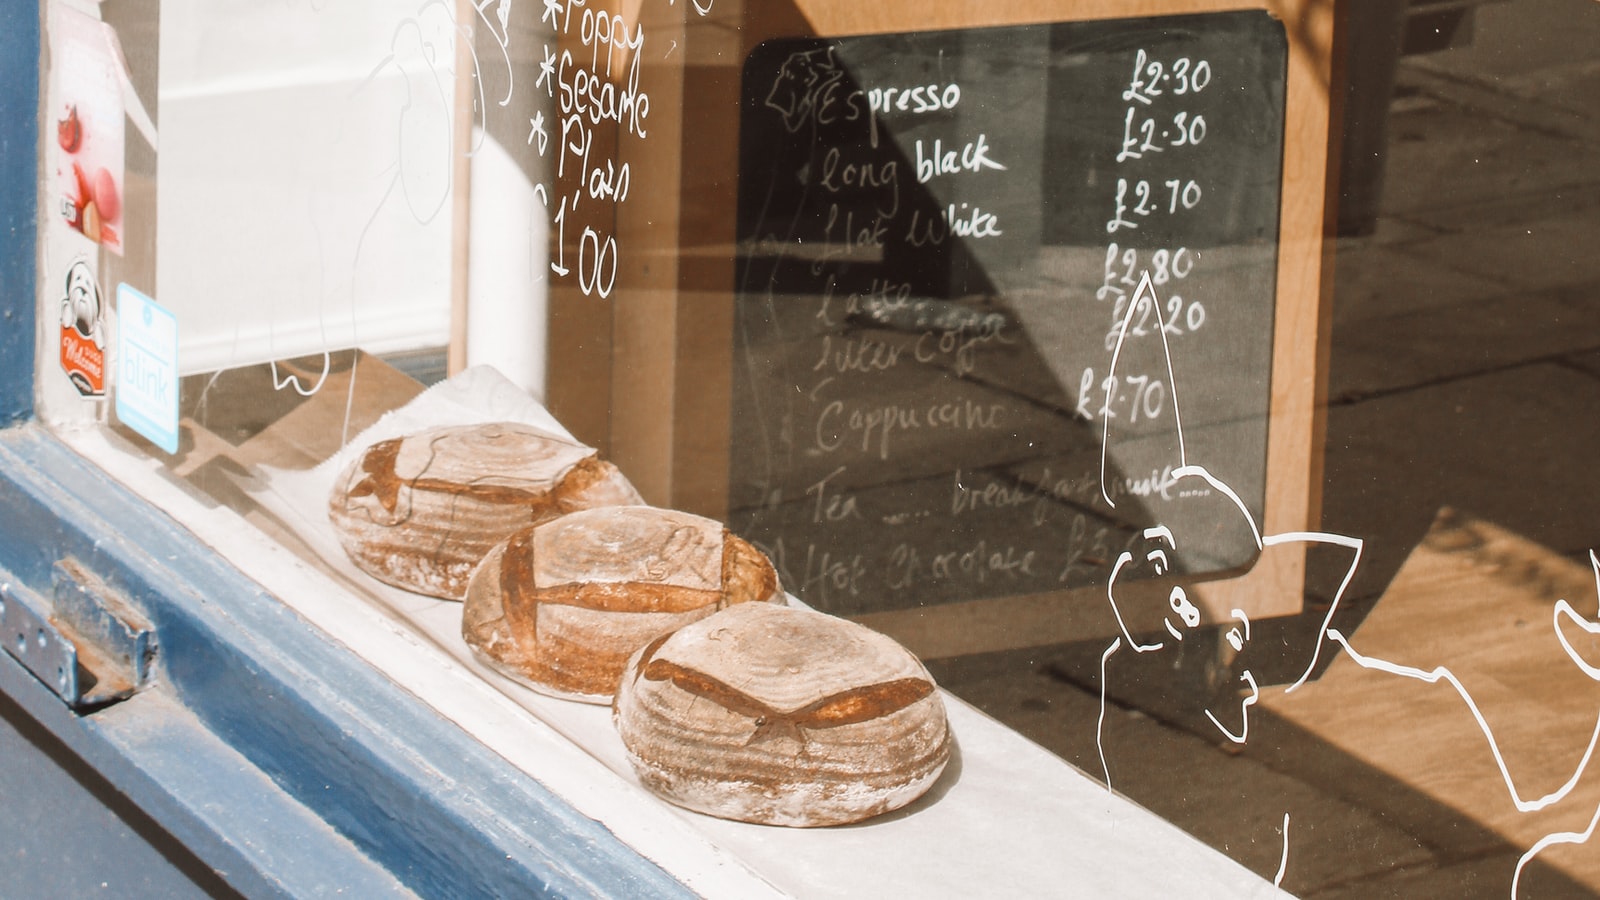 *Poppy
*Sesame
* Plain
1.00
Espresso £2.30
long black £2.30
flat White £2.70
latte £2.80
filter Coffee £2.20
Cappuccino £2.70
Tea .... breakfast, mint .....
Hot Chocolate £3
DOGS
Welcome
blink